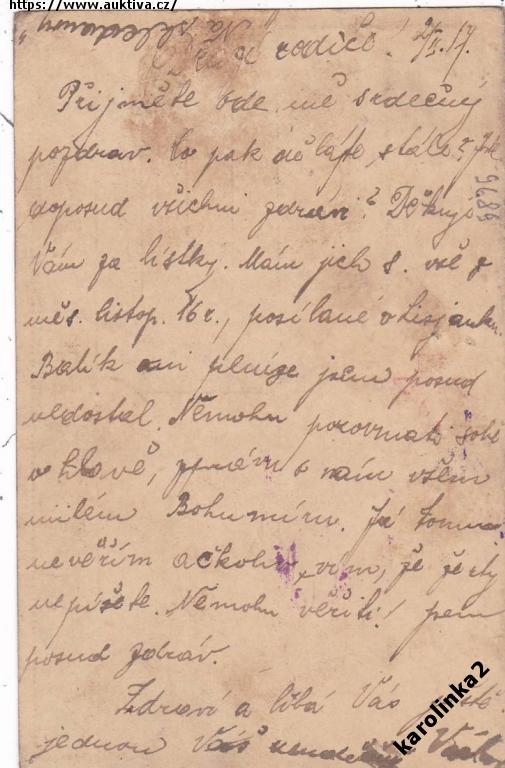 https://www.auktiva.cz/
Na shledanou"
rodiče! 2/II. 17.
Přijměte ode mě srdečný
pozdrav. Co pak děláte, stále? Jste
doposud všichni zdrávi? Děkuji
Vám za lístky. Mám jich 8. vše z
měs. listop. 16 r., posílané v
Balík ani peníze jsem posud
nedostal. Nemohu porovnati sobě
v hlavě, zprávu s naším všem
milém Bohumíru. Já tomu
nevěřím ačkoliv vím, že že
nepíšete. Nemohu věřiti! jsem
posud zdráv.
Zdraví a líbá Vás ještě
jednou Váš
9896
karolinka2